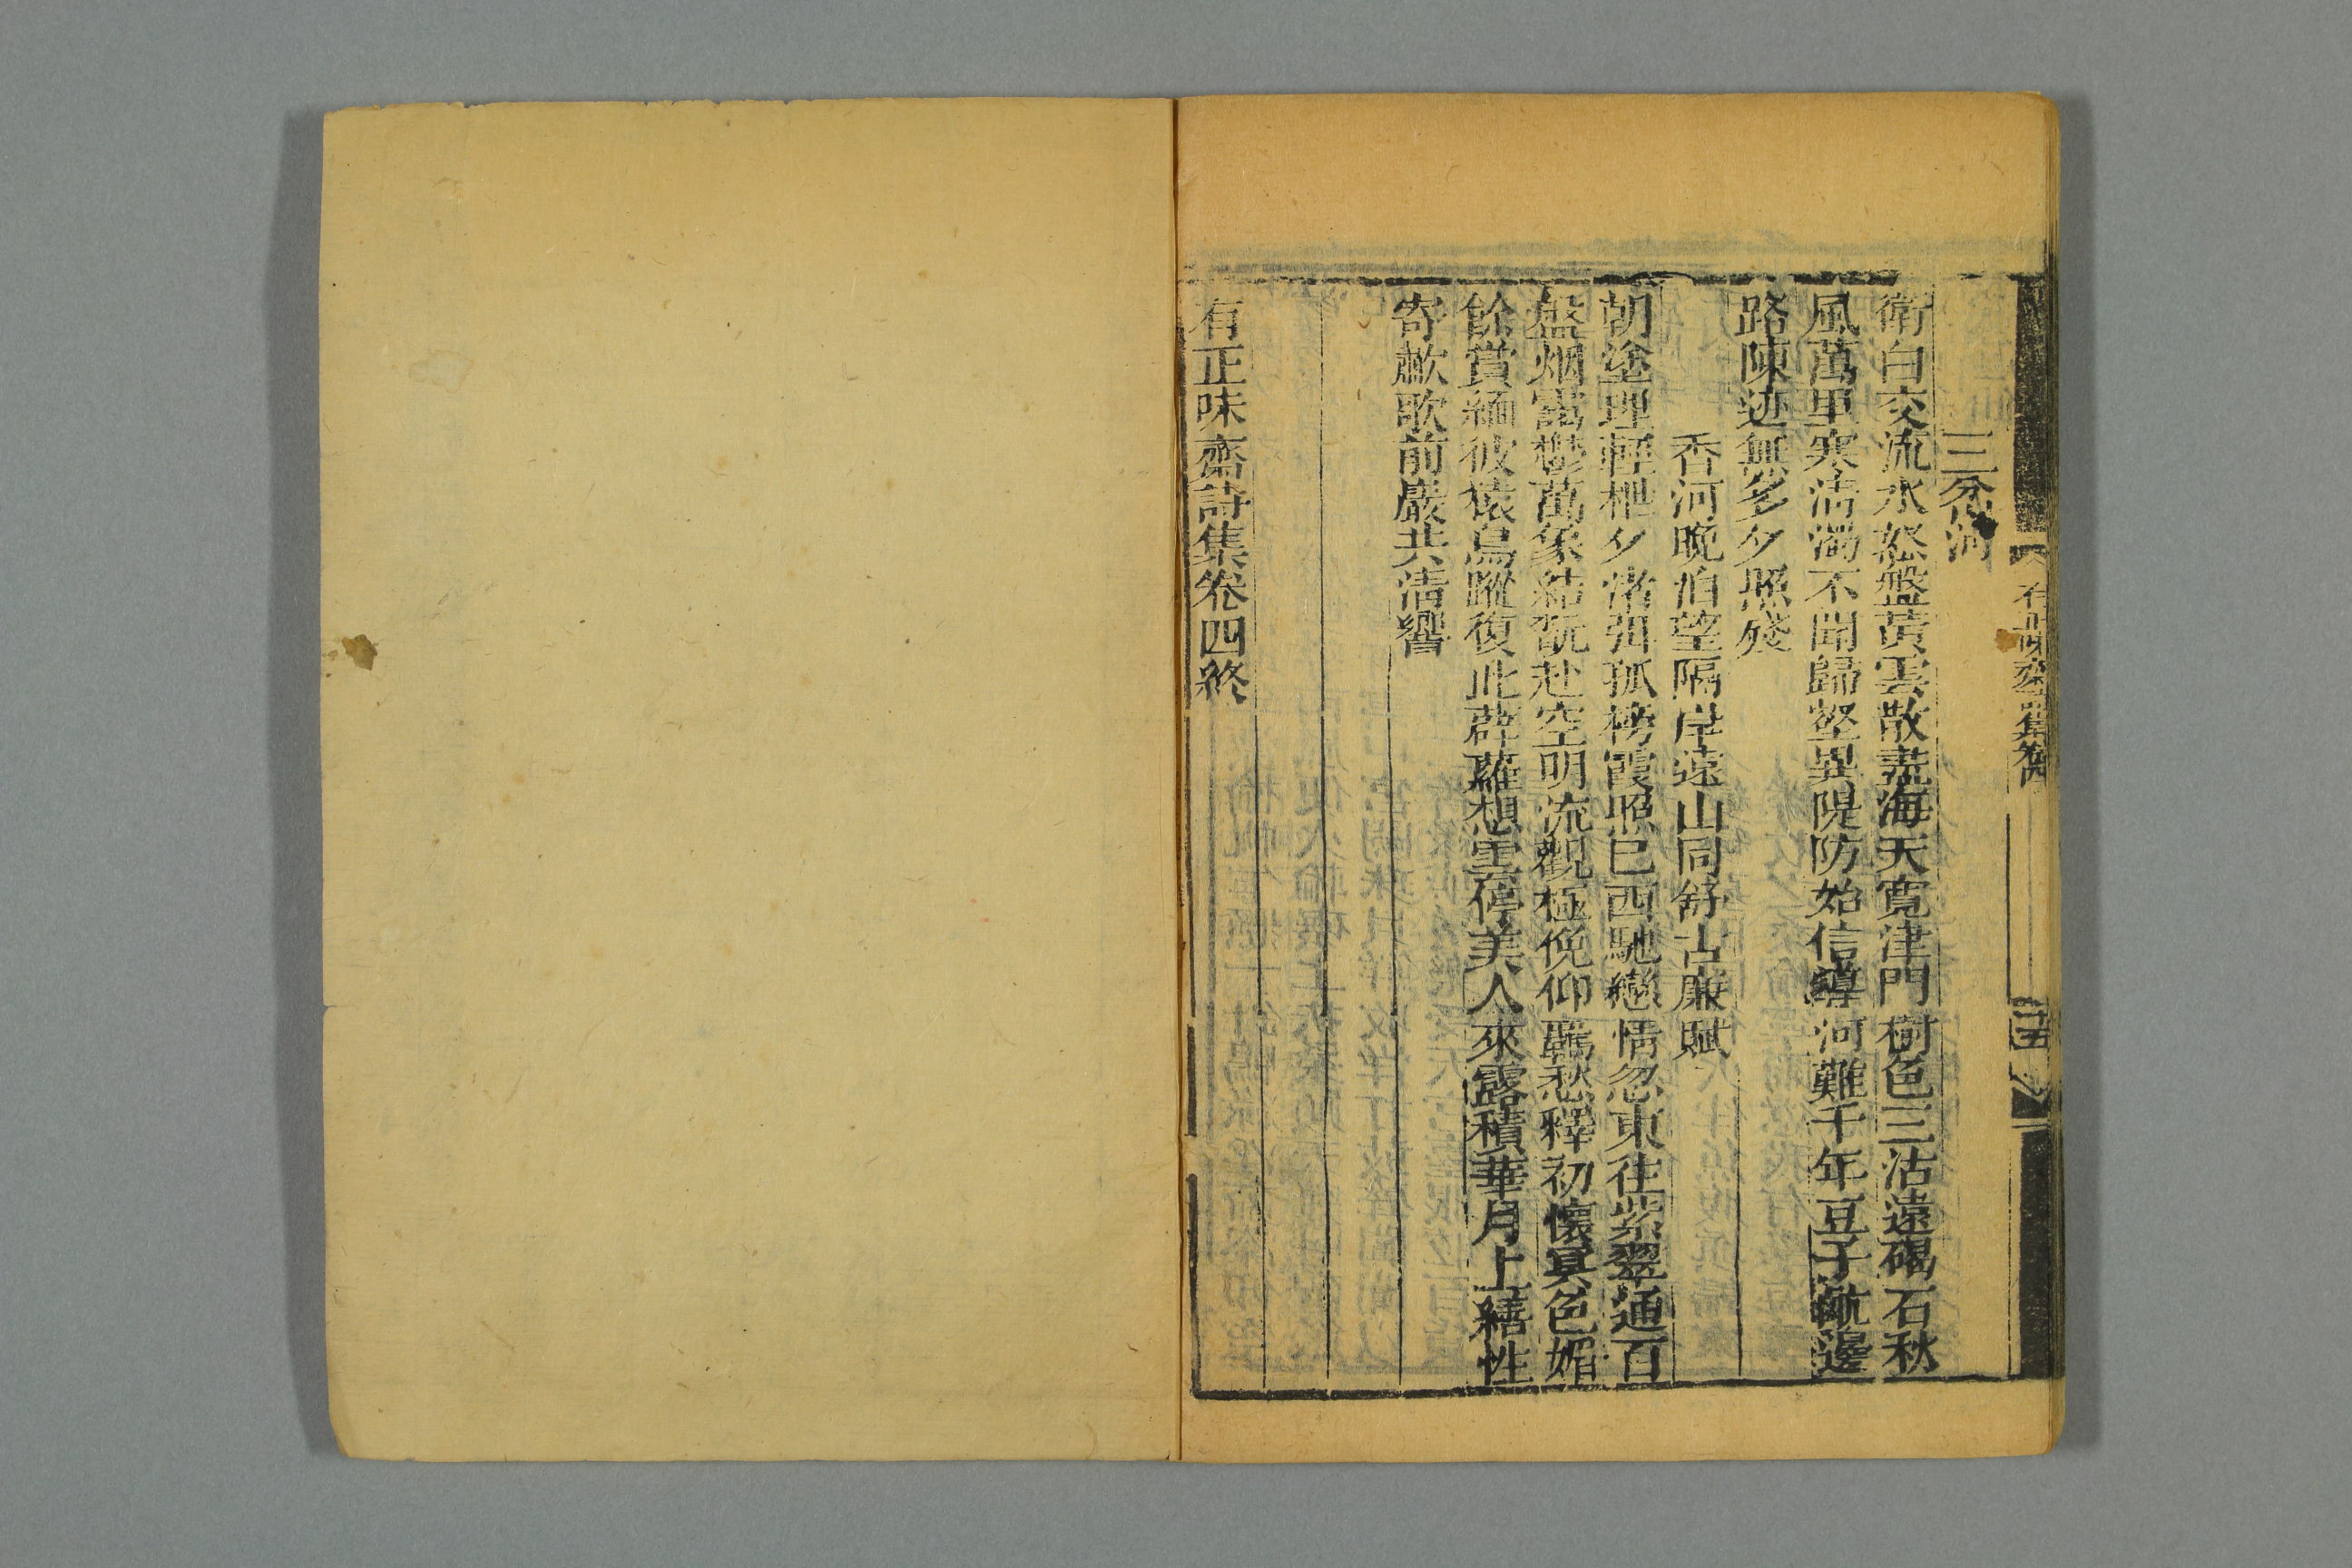 三岔河
衛白交流水怒盤黃雲散盡海天寬津門樹色三沽遠碣石秋
風萬里寒清濁不聞歸壑異隄防始信導河難千年豆子䴚邊
路陳迹無多夕照殘
香河晚泊望隔岸遠山同舒古廉賦
朝塗理輕枻夕渚弭孤榜霞照已西馳戀情忽東往紫翠通百
盤烟靄鬱萬象結翫赴空明流觀極俛仰羈愁釋初懷冥色媚
餘賞緬彼猿鳥蹤復此薜蘿想雲停美人來露積華月上繕性
寄歗歌前巖共清響
有正味齋詩集卷四終
有正味齋詩集卷四
十五